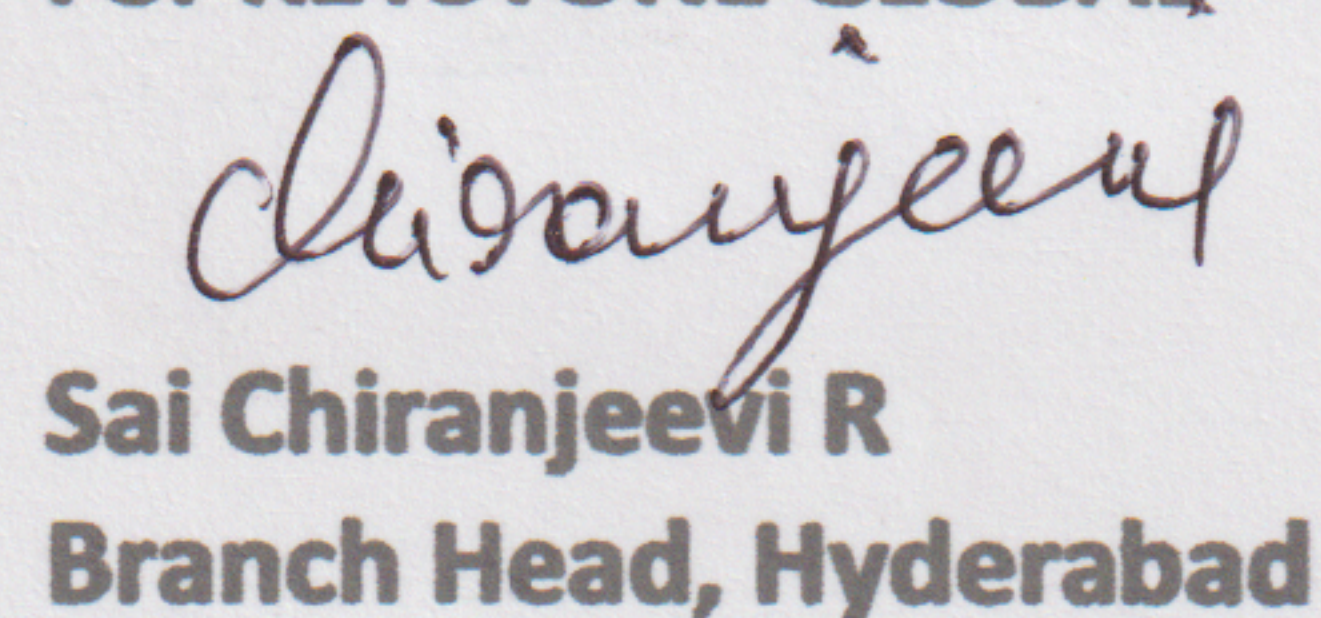 Chiranjeevi
Sai Chiranjeevi R
Branch Head, Hyderabad